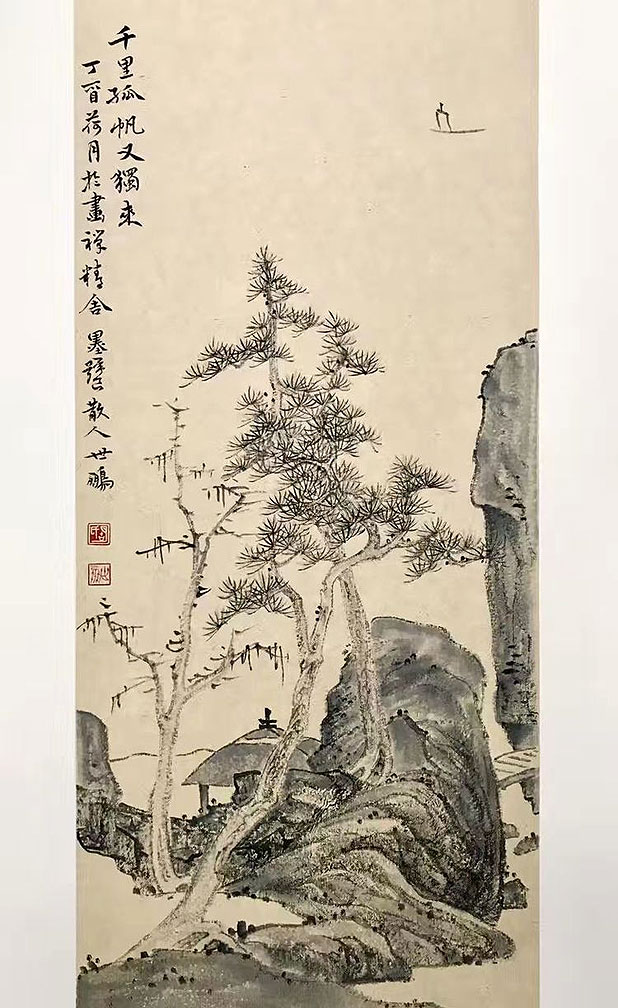 千里孤帆又獨來
丁酉荷月於畫禪精舍 墨璧散人世鵬